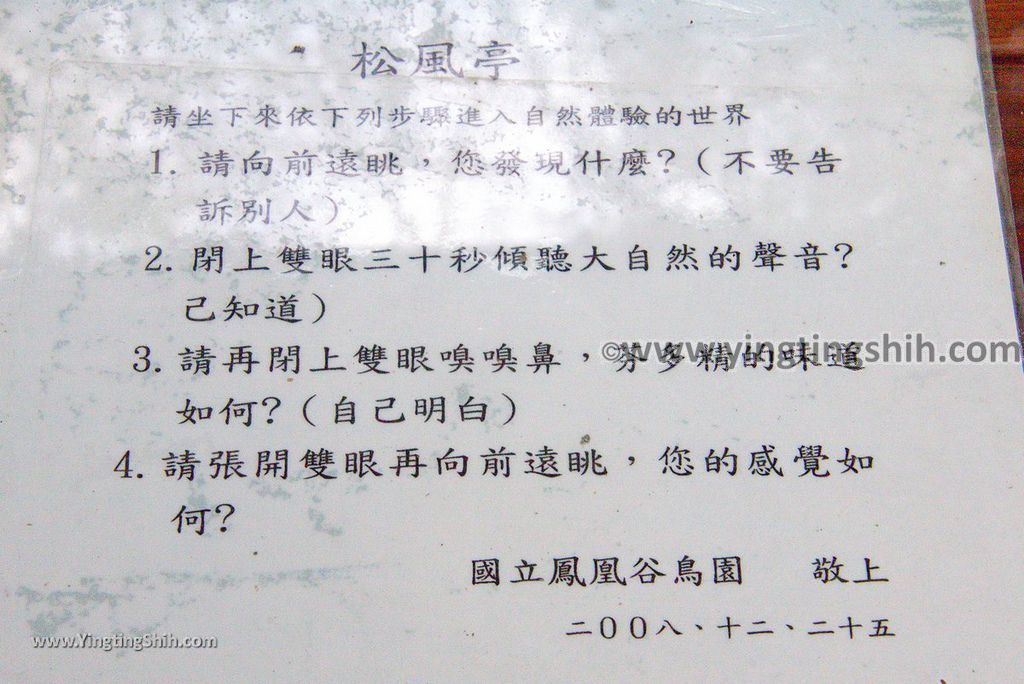 松風亭
請坐下來依下列步驟進入自然體驗的世界
1. 請向前遠眺，您發現什麼?（不要告
訴別人）
2. 閉上雙眼三十秒傾聽大自然的聲音?
己知道）
3. 請再閉上雙眼嗅嗅鼻，芬多精的味道
如何?（自己明白）
4. 請張開雙眼再向前遠眺，您的感覺如
何?
國立鳳凰谷鳥園 敬上
二００八、十二、二十五
©www.yingtingshih.com
www.YingtingShih.com